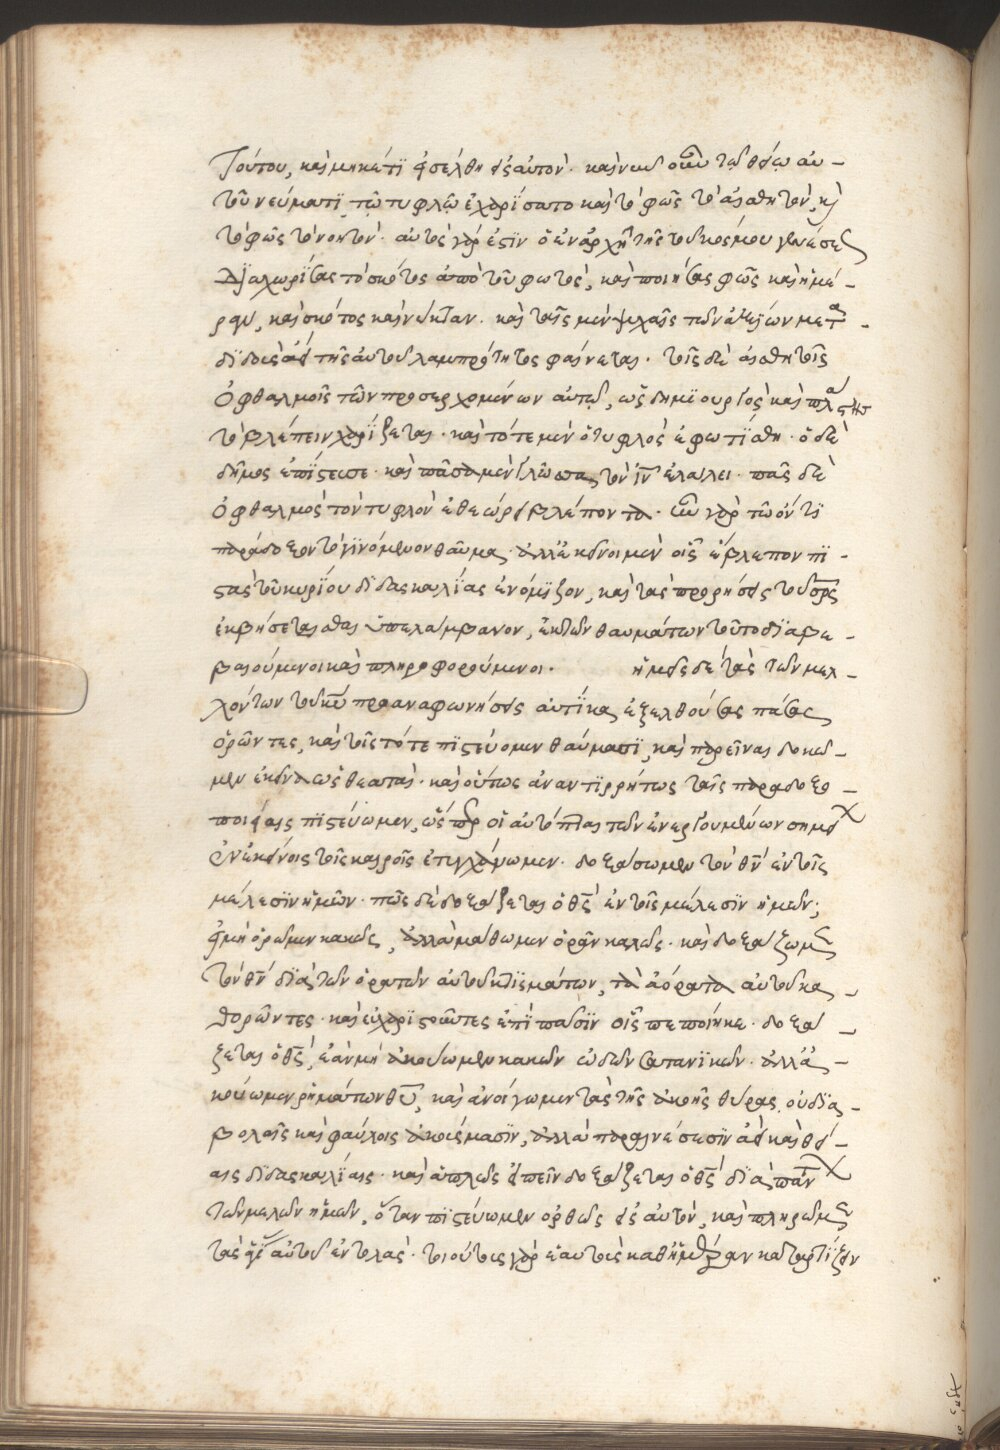 τούτου, καὶ μηκέτι εἰσέλθη εἰς αὐτόν. καὶ νῦν οὖν τῶ θείω αυ-
τοῦ νεύματι, τῶ τυφλῶ ἐχαρίσατο καὶ τὸ φῶς τὸ αἰσθητὸν, κὶ
τὸ φῶς τὸ νοητόν. αὐτὸς γάρ ἐστιν ὁ ἐν ἀρχῆ τῆς τοῦ κόσμου γενέσεως
διαχωρίσας τὸ σκότος ἀπὸ τοῦ φωτὸς, καὶ ποιήσας φῶς καὶ ἡμέ-
ραν, καὶ σκότος καὶ νύκταν. καὶ ταῖς μὲν ψυχαῖς τῶν ἁγίων μετα-
διδοὺς ἀεὶ τῆς αὐτοῦ λαμπρότητος φαίνεται. τοῖς δὲ αἰσθητοῖς
ὀφθαλμοῖς τῶν προσερχομένων αὐτῶ, ὡς δημιουργὸς καὶ πλάστης
τὸ βλέπειν χαρίζεται. καὶ τότε μὲν ὁ τυφλὸς ἐφωτίσθη. ὁ δὲ
δῆμος ἐπίστευσε. καὶ πᾶσα μὲν γλῶσσα, τὸν ιν ἐλάλει. πᾶς δὲ
ὀφθαλμὸς τὸν τυφλὸν ἐθεώρει βλέποντα. ἦν γὰρ τῶ ὄντι
παράδοξον τὸ γινόμενον θαῦμα. ἀλλ' ἐκεῖνοι μὲν οἷς ἔβλεπον πι-
στὰς τοῦ κυρίου διδασκαλίας ἐνόμιζον, καὶ τὰς προρήσεις τοῦ σρς
ἐκβήσεται σθαι ὑπελάμβανον, ἐκ τῶν θαυμάτων τοῦτο διαβε-
βαιούμενοι καὶ πληροφορούμενοι. ἡμεῖς δὲ τὰς τῶν μελ-
λόντων τοῦ κυ προαναφωνήσεις αὐτίκα ἐξελθούσας πάσας
ὁρῶντες, καὶ τοῖς τότε πιστεύομεν θαύμασι, καὶ παρεῖναι δοκοῦ-
μεν ἐκεῖνα ὡς θεαταὶ. καὶ οὕτως ἀναντιρρήτως ταῖς παραδοξο-
ποιΐαις πιστεύωμεν, ὥσπερ οἱ αὐτόπται τῶν ἐνεργουμένων σημεί
ων ἐκείνοις τοῖς καιροῖς ἐτυγχάνωμεν. δοξάσωμεν τὸν θν ἐν τοῖς
μέλεσιν ἡμῶν. πῶς δὲ δοξάζεται ὁ θς ἐν τοῖς μέλεσιν ἡμῶν;
εἰ μὴ ὁρῶμεν κακῶς, ἀλλὰ μάθωμεν ὁρᾶν καλῶς. καὶ δοξάζωμεν
τὸν θν διὰ τῶν ὁρατῶν αὐτοῦ κτισμάτων, τὰ ἀόρατα αὐτοῦ κα-
θορῶντες. καὶ εὐχαριστοῦντες ἐπὶ πᾶσιν οἷς πεποίηκε. δοξά-
ζεται ὁ θς, ἐὰν μὴ ἀκούωμεν κακῶν ὠδῶν σατανικῶν. ἀλλὰ ἀ-
κούωμεν ρημάτων θυ, καὶ ἀνοίγωμεν τὰς τῆς ἀκοῆς θύρας. οὐ δια-
βολαῖς καὶ φαύλοις ἀκούσμασιν, ἀλλὰ παραινέσεσιν ἀεὶ καὶ θεί-
αις διδασκαλίαις. καὶ ἁπλῶς εἰπεῖν δοξάζεται ὁ θς διὰ πάντων
τῶν μελῶν ἡμῶν, ὅταν πιστεύωμεν ὀρθῶς εἰς αὐτὸν, καὶ πληρῶμεν
τὰς αὐτοῦ ἐντολὰς. τοιούτοις γὰρ ἑαυτοὺς καθ' ἡμέραν καταρτίζειν